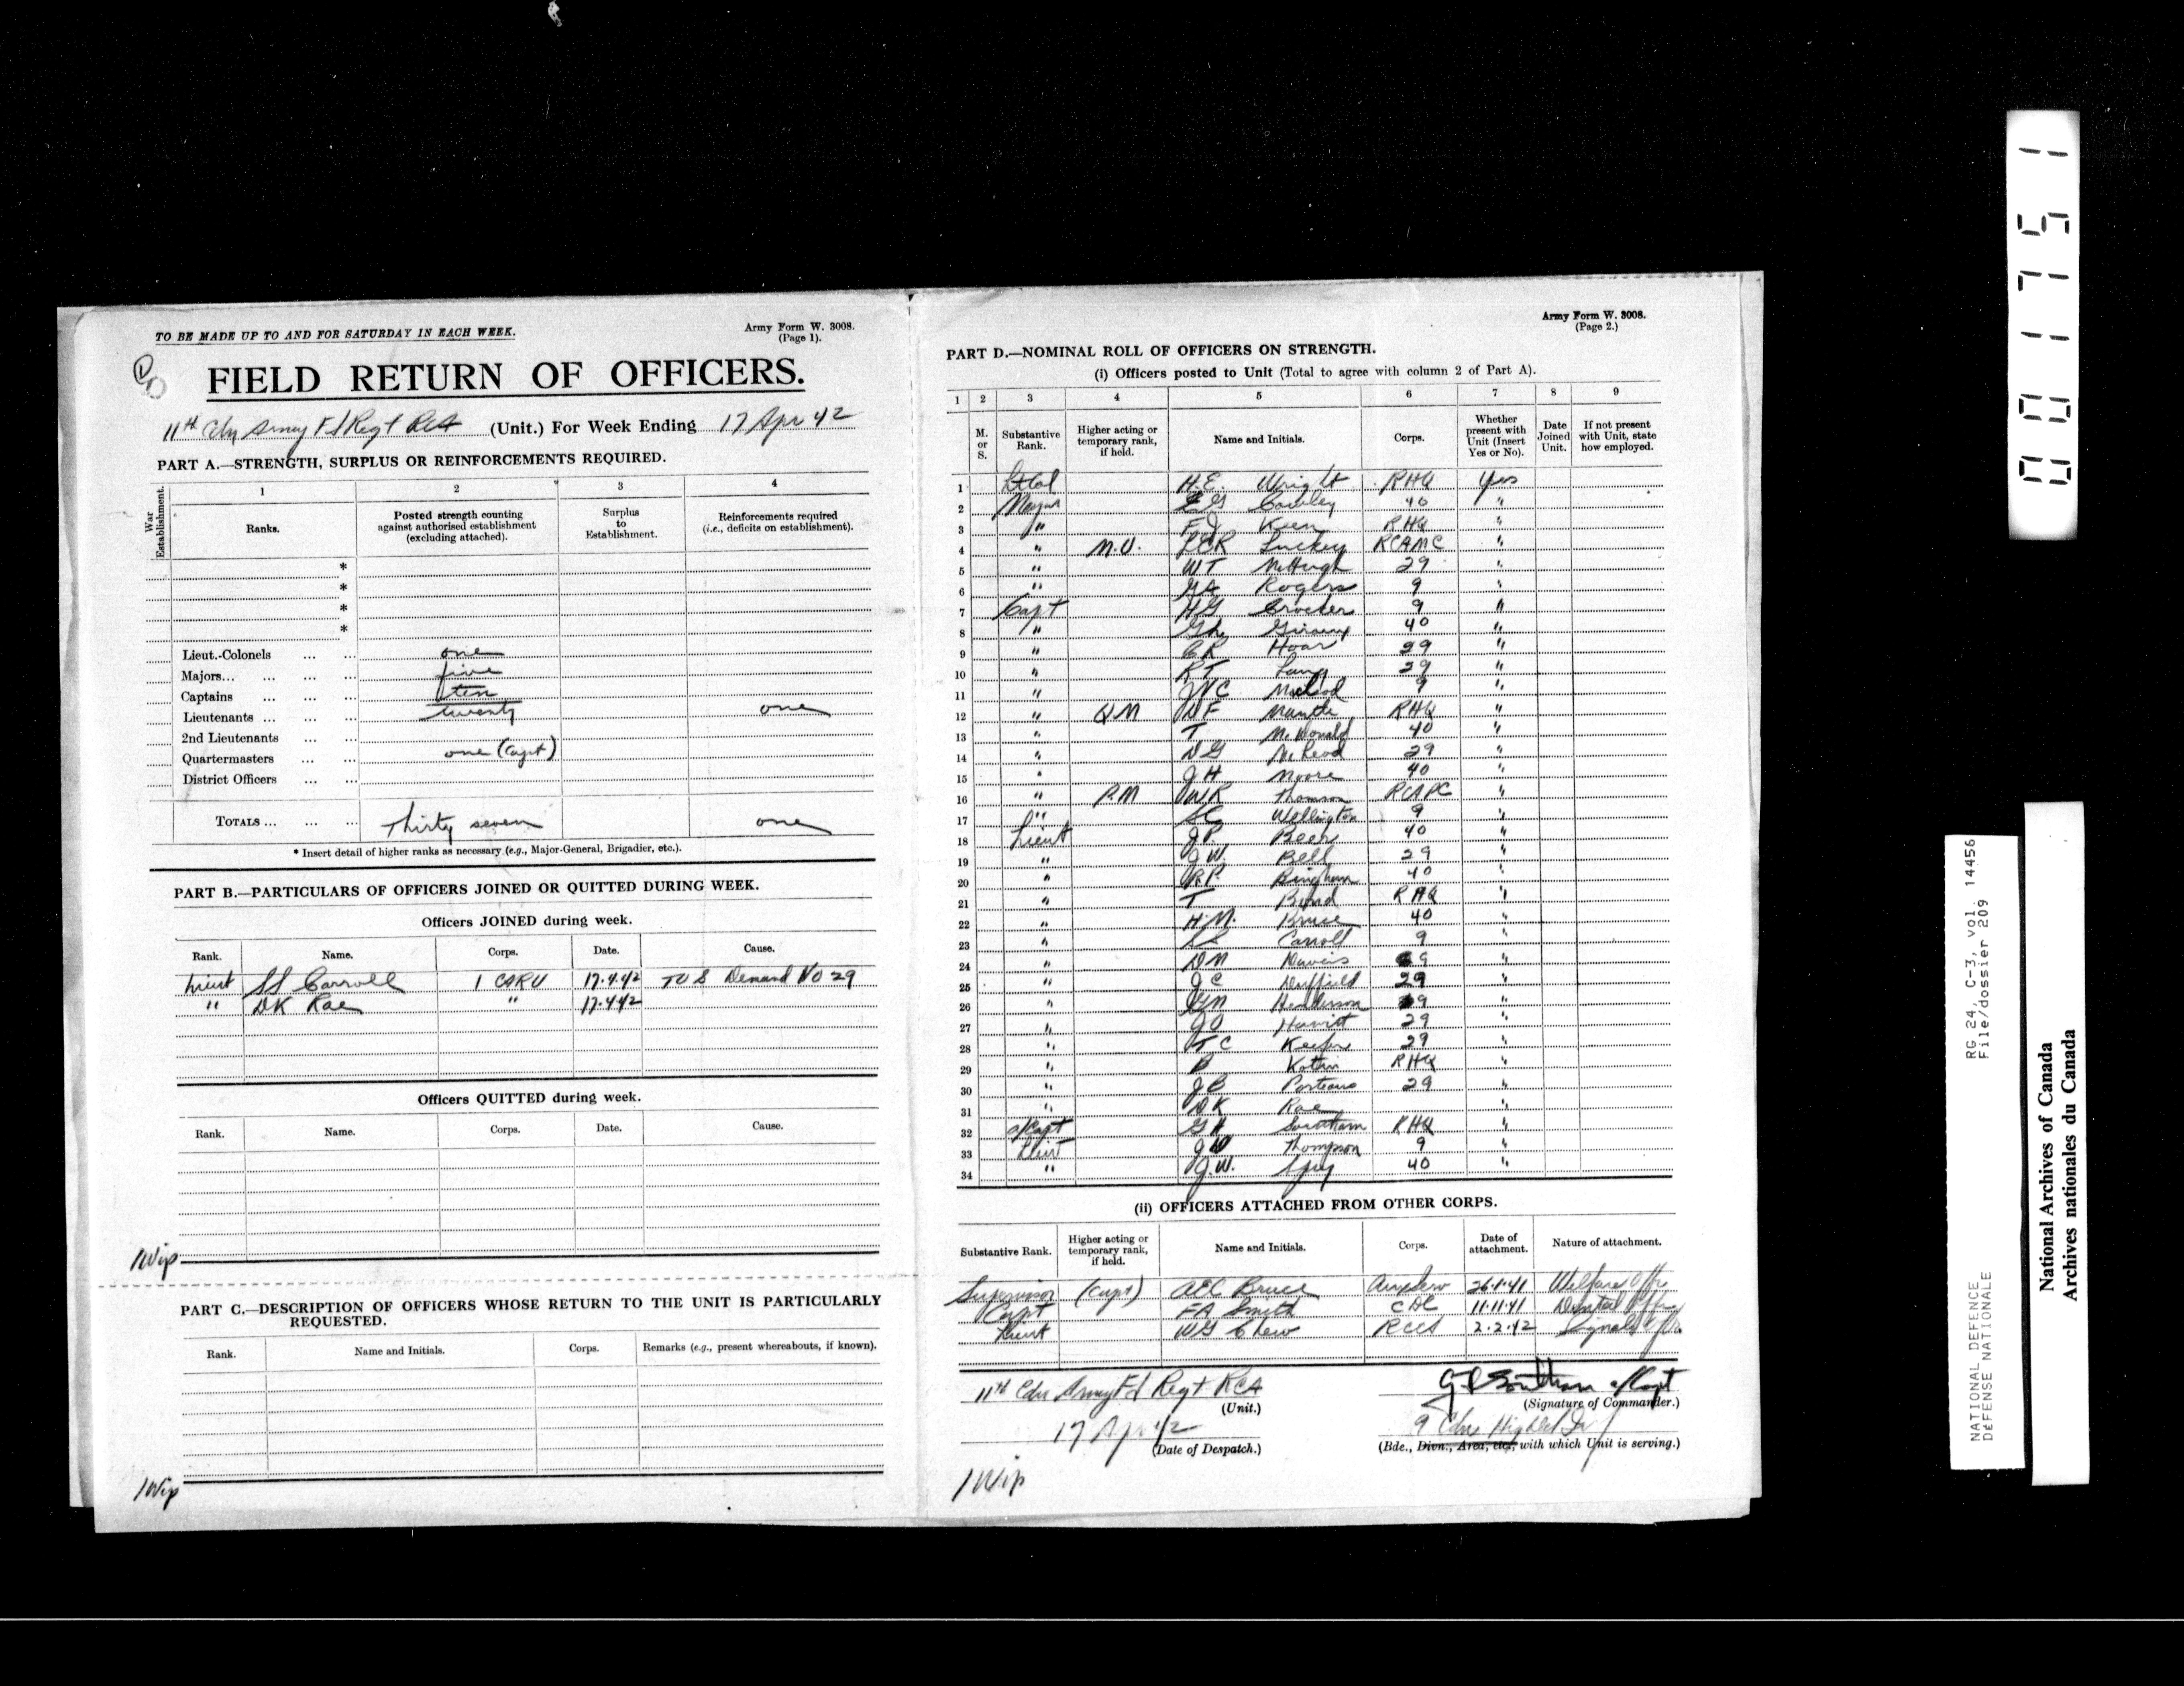 TO BE MADE UP TO AND FOR SATURDAY IN EACH WEEK.
Army Form W. 3008.
(Page 1).
FIELD RETURN OF OFFICERS.
11th Cdn Army Fd Regt RCA (Unit.) For Week Ending 17 Apr 42
PART A.—STRENGTH, SURPLUS OR REINFORCEMENTS REQUIRED.
War Establishment.
1 2 3 4
Ranks.
Posted strength counting against authorised establishment (excluding attached).
Surplus to Establishment.
Reinforcements required (i.e., deficits on establishment).
*
*
*
*
Lieut.-Colonels ... ... one
Majors... ... ... five
Captains ... ... ten
Lieutenants ... ... ... twenty one
2nd Lieutenants ... ...
Quartermasters ... ... one (Capt)
District Officers ... ...
TOTALS ... ... ... Thirty seven one
* Insert detail of higher ranks as necessary (e.g., Major-General, Brigadier, etc.).
PART B.—PARTICULARS OF OFFICERS JOINED OR QUITTED DURING WEEK.
Officers JOINED during week.
Rank. Name. Corps. Date. Cause.
Lieut Carroll 1 CARU 17.4.42 TOS Demand No 29
" DK Rae " 17.4.42
Officers QUITTED during week.
Rank. Name. Corps. Date. Cause.
PART C.—DESCRIPTION OF OFFICERS WHOSE RETURN TO THE UNIT IS PARTICULARLY
REQUESTED.
Rank. Name and Initials. Corps. Remarks (e.g., present whereabouts, if known).
Army Form W. 3008.
(Page 2.)
PART D.—NOMINAL ROLL OF OFFICERS ON STRENGTH.
(i) Officers posted to Unit (Total to agree with column 2 of Part A).
1 2 3 4 5 6 7 8 9
M. or S.
Substantive Rank.
Higher acting or temporary rank, if held.
Name and Initials.
Corps.
Whether present with Unit (Insert Yes or No).
Date Joined Unit.
If not present with Unit, state how employed.
1 Lt Col H.E. Wright RHQ Yes
2 Major 40 "
3 " Keen RHQ "
4 " M.O. Luckey RCAMC "
5 " WT McHugh 29 "
6 " Rogers 9 "
7 Capt HG Crocker 9 "
8 " 40 "
9 " CR Hoar 29 "
10 " RT Lang 29 "
11 " JNC Macleod 9 "
12 " QM DF Mantle RHQ "
13 " T McDonald 40 "
14 " DG McLeod 29 "
15 " JH Moore 40 "
16 " P.M JWR Thomson RCAPC "
17 " Wellington 9 "
18 Lieut JP Beer 40 "
19 " JW. Bell 29 "
20 " Bingham 40 "
21 " T Bond RHQ "
22 " H.M. Bruce 40 "
23 " Carroll 9 "
24 " DM Daveis 9 "
25 " JC Duffield 29 "
26 " Henderson 9 "
27 " JO Hewitt 29 "
28 " TC Keefer 29 "
29 " B RHQ "
30 " Porteous 29 "
31 " DK Rae "
32 a/Capt Southam RHQ "
33 Lieut Thompson 9 "
34 " J.W. 40 "
(ii) OFFICERS ATTACHED FROM OTHER CORPS.
Substantive Rank.
Higher acting or temporary rank, if held.
Name and Initials.
Corps.
Date of attachment.
Nature of attachment.
Supervisor (Capt) AEC Bruce 26.1.41 Welfare Offr
Capt FA Smith CDC 11.11.41 Dental Offr
Lieut WG Chew RCCS 2.2.42 Signals Offr.
11th Cdn Army Fd Regt RCA
(Unit.)
a/Capt
(Signature of Commander.)
17 Apr 42
(Date of Despatch.)
(Bde., Divn., Area, etc., with which Unit is serving.)
0001751
RG 24, C-3, vol. 14456
File/dossier 209
NATIONAL DEFENCE
DÉFENSE NATIONALE
National Archives of Canada
Archives nationales du Canada